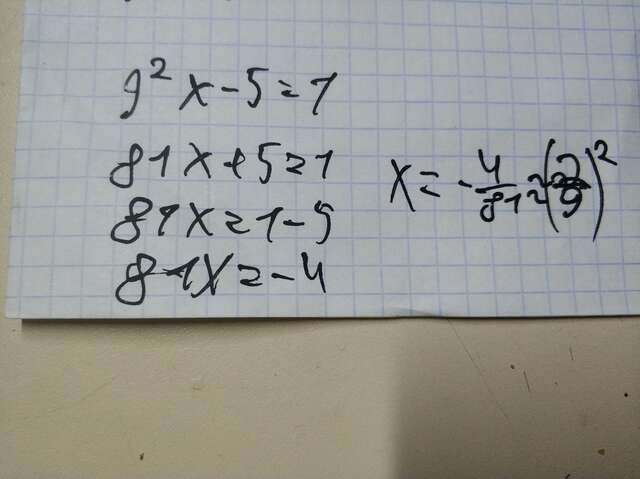 9² x - 5 = 1
81x + 5 = 1
81x = 1 - 5
81x = -4
x = -4/81 = (2/9)²